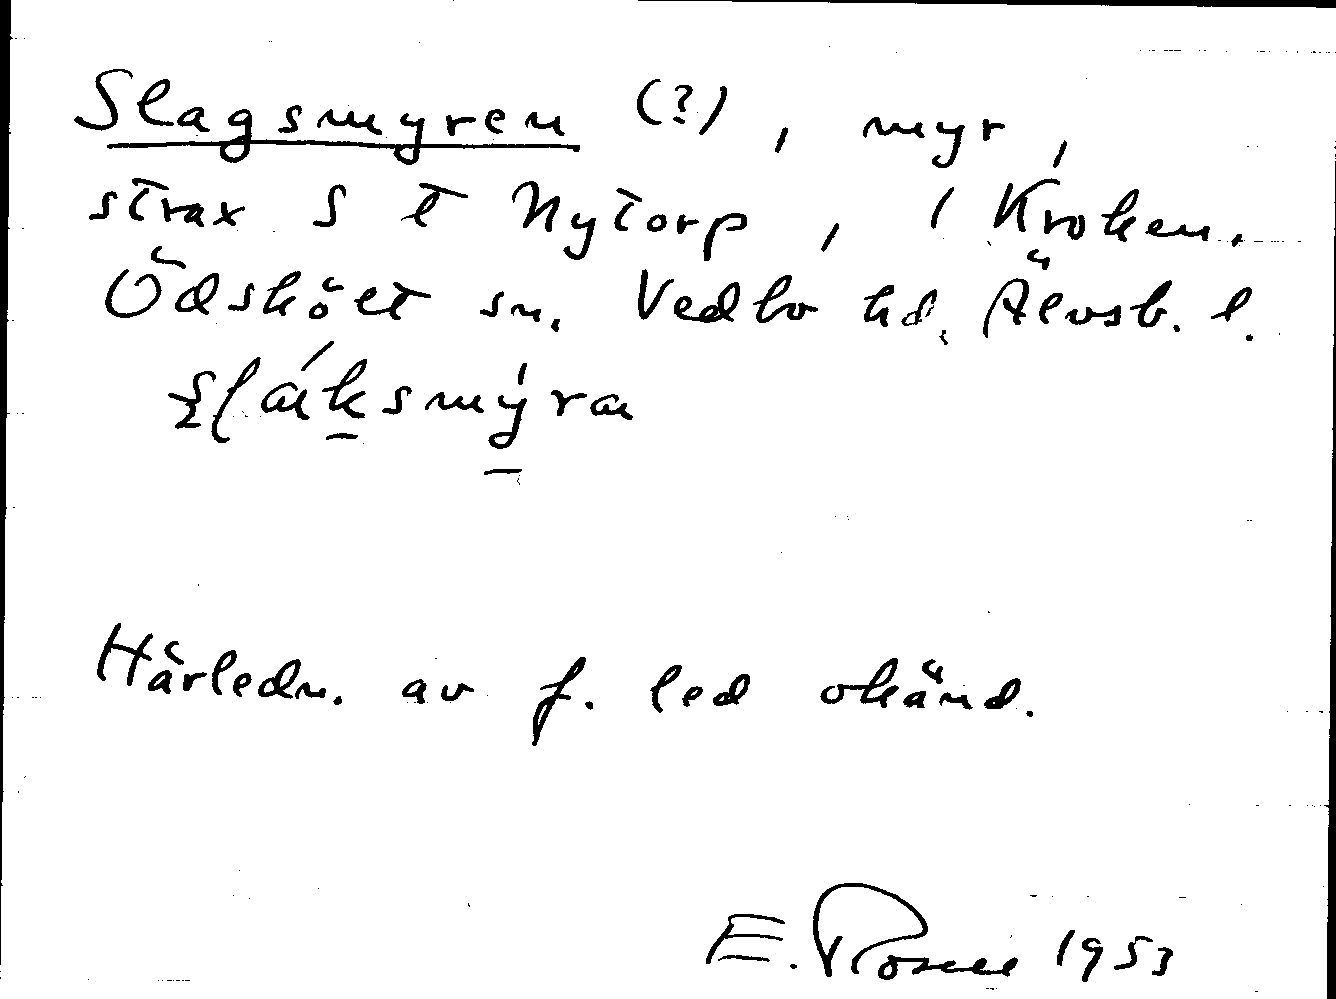 Slagsmyren (?), myr,
strax S t Nytorp, i Kroken.
Ödskölt sn. Vedbo hd. Älvsb. l.
Härledn. av f. led okänd.
E. Rosell 1953